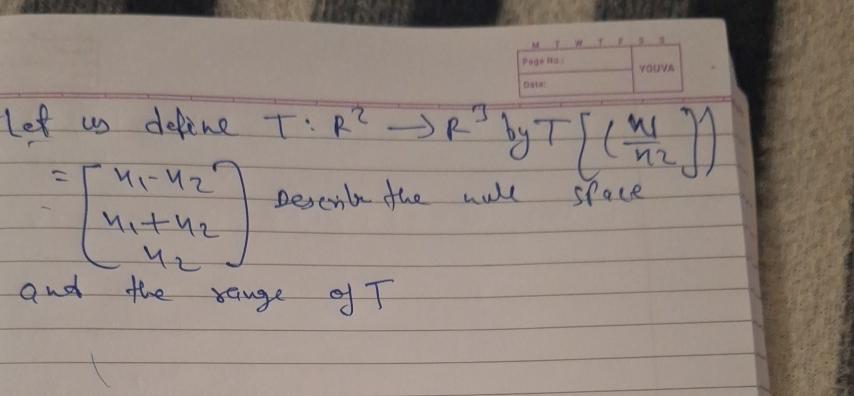 M T W T F S S
Page No.:
YOUVA
Date:
Let us define T : R² → R³ by T [(x1/x2])
= [x1-x2
x1+x2
x2] Describe the null space
and the range of T